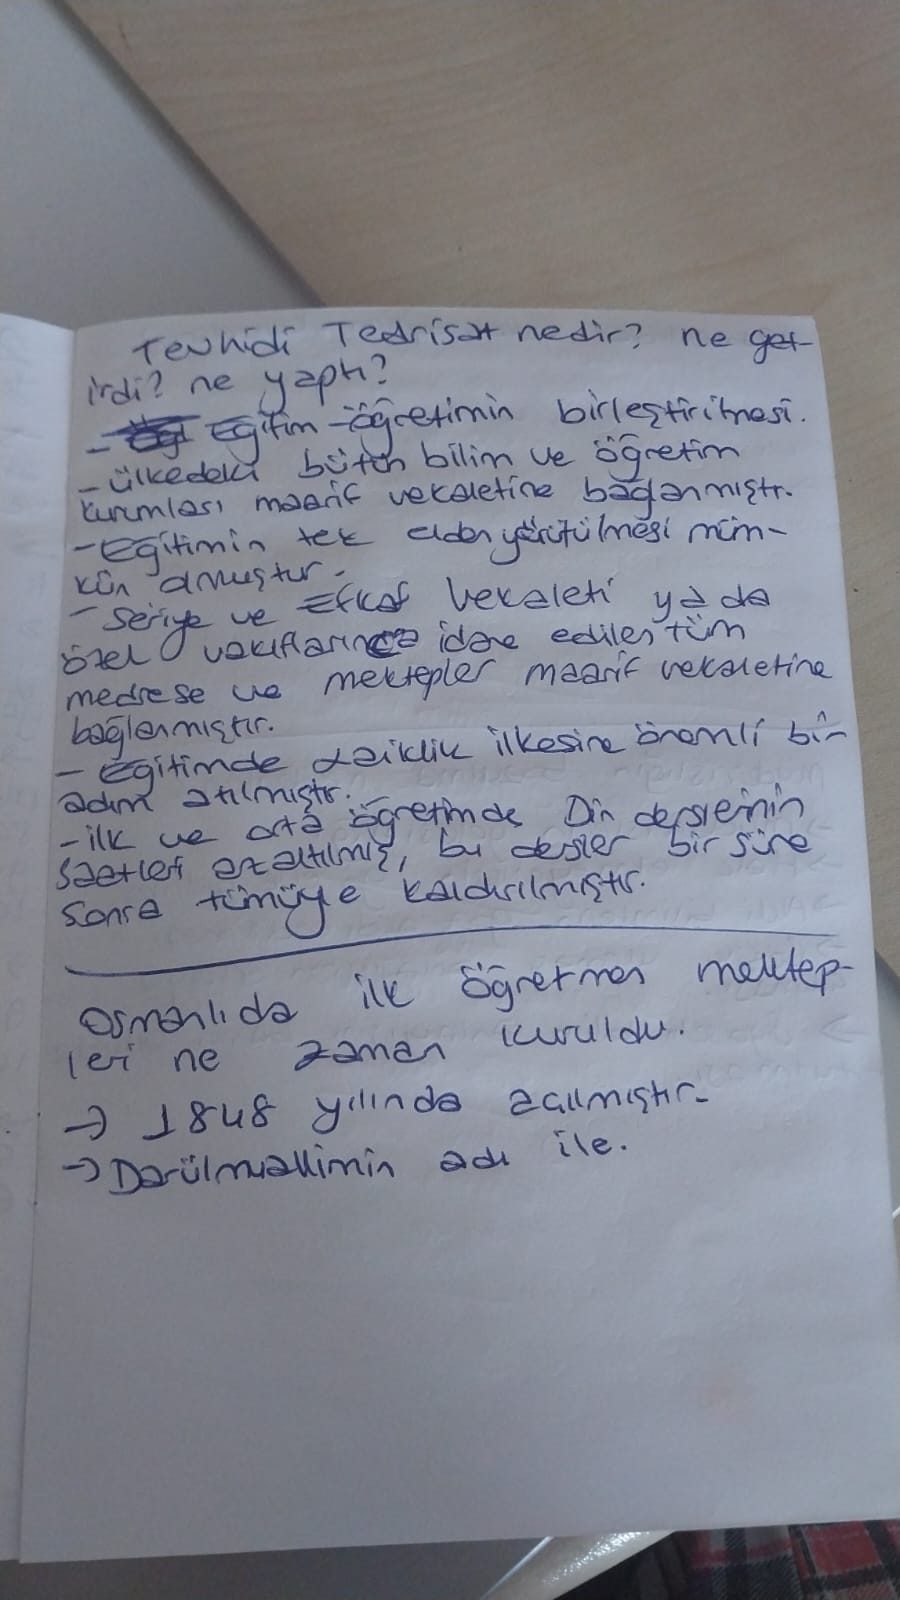 Tevhidi Tedrisat nedir? ne get-
irdi? ne yaptı?
- Eğitim-öğretimin birleştirilmesi.
- ülkedeki bütün bilim ve öğretim
kurumları maarif vekaletine bağlanmıştır.
- Eğitimin tek elden yürütülmesi müm-
kün olmuştur.
- Şeriye ve Efkaf Vekaleti ya da
özel vakıflarınca idare edilen tüm
medrese ve mektepler maarif vekaletine
bağlanmıştır.
- Eğitimde Laiklik ilkesine önemli bir
adım atılmıştır.
- ilk ve orta öğretimde Din derslerinin
saatleri azaltılmış, bu dersler bir süre
sonra tümüyle kaldırılmıştır.
Osmanlıda ilk öğretmen mektep-
leri ne zaman kuruldu.
→ 1848 yılında açılmıştır.
→ Darülmuallimin adı ile.